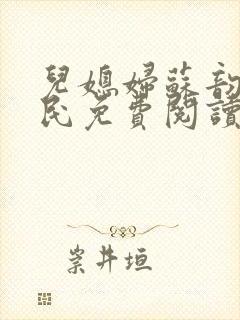 兒媳婦蘇韵
民免費閱讀
崇井垣